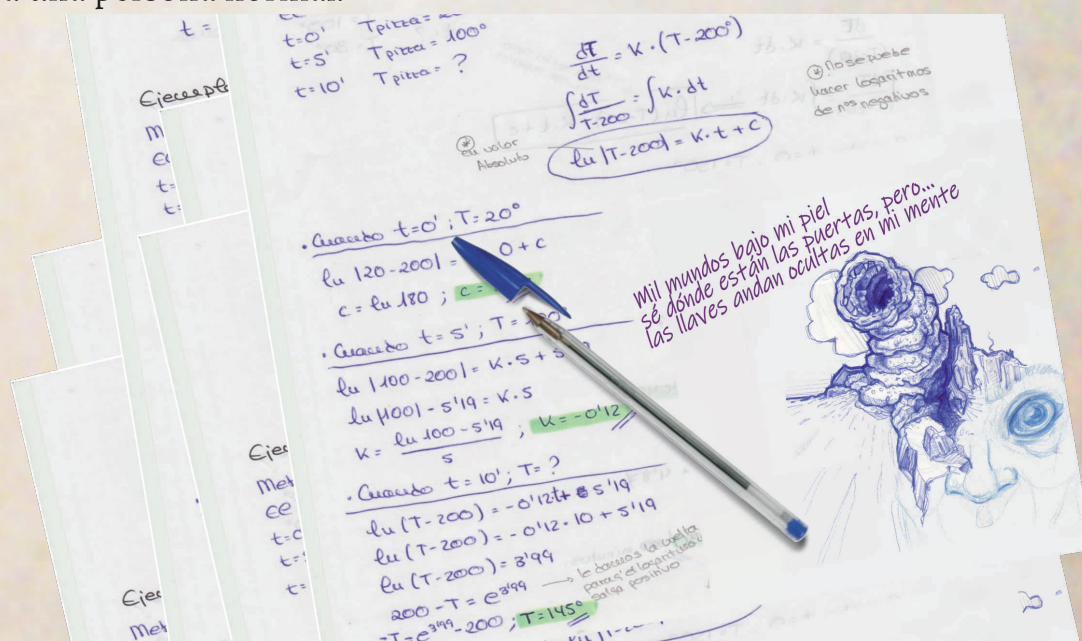 a una persona normal.
t =
t=0' Tpizza =
t=5' Tpizza = 100°
t=10' Tpizza = ?
dT/dt = K·(T-200°)
∫dT/T-200 = ∫K·dt
ln |T-200| = K·t + C
* en valor
Absoluto
* No se puede
hacer logaritmos
de nos negativos
Ejemplo
M
t=
t=
· Cuando t=0' ; T=20°
ln |20-200| = 0 + C
C = ln 180 ; C =
· Cuando t=5' ; T=
ln |100-200| = K·5 + 5
ln |100| - 5'19 = K·5
K = ln 100 - 5'19 / 5 ; K = -0'12
· Cuando t=10' ; T= ?
ln (T-200) = -0'12t + 5'19
ln (T-200) = -0'12·10 + 5'19
ln (T-200) = 3'99
200 - T = e^3'99 → le damos la vuelta
para q' el logaritmo
salga positivo
-T = e^3'99 - 200 ; T = 145°
Mil mundos bajo mi piel
sé dónde están las puertas, pero...
las llaves andan ocultas en mi mente
Ejem
Met
t=0
t=
t=
Ejem
Met